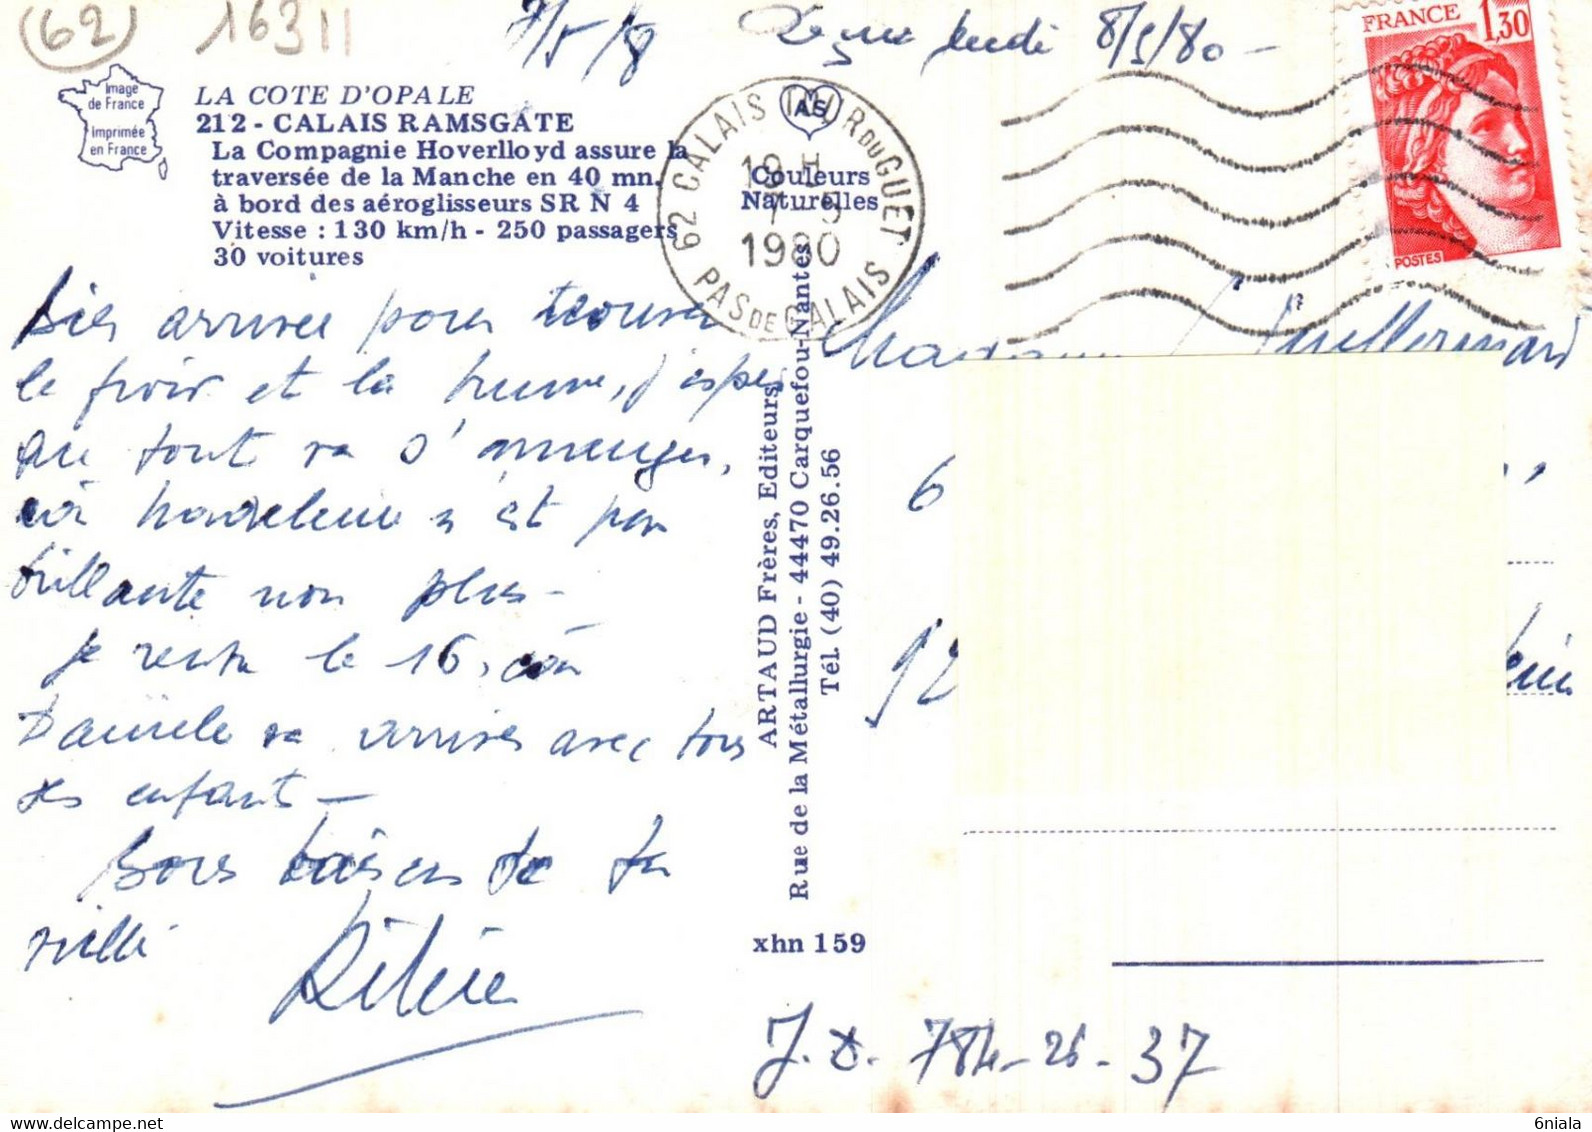 (62) 16311
7/5/8
Reçue Jeudi 8/5/80 -
FRANCE 1,30
POSTES
Image
de France
Imprimée
en France
LA COTE D'OPALE
212 - CALAIS RAMSGATE
La Compagnie Hoverlloyd assure la
traversée de la Manche en 40 mn.
à bord des aéroglisseurs SR N 4
Vitesse : 130 km/h - 250 passagers
30 voitures
AS
Couleurs
Naturelles
62 CALAIS R DU GUET
19 H
7 - 5
1980
PAS DE CALAIS
Bien arrivée pour trouver
le froid et la brume, j'espère
que tout va s'arranger,
car n'est pas
brillante non plus -
je reste le 16, car
Danièle va arriver avec tous
ses enfants -
Bons baisers de ta
vieille
Madame
6
92
ARTAUD Frères, Editeurs
Rue de la Métallurgie - 44470 Carquefou-Nantes
Tél. (40) 49.26.56
xhn 159
J. D. 784-26-37
6niala